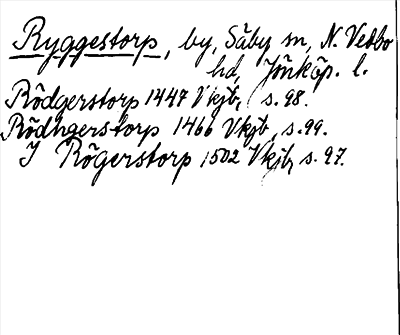 Ryggestorp, by, Säby sn, N. Vedbo
hd, Jönköp. l.
Rödgerstorp 1447 Vkjb, s. 98.
Rödhgerstorp 1466 Vkjb, s. 99.
J Rögerstorp 1502 Vkjb, s. 97.